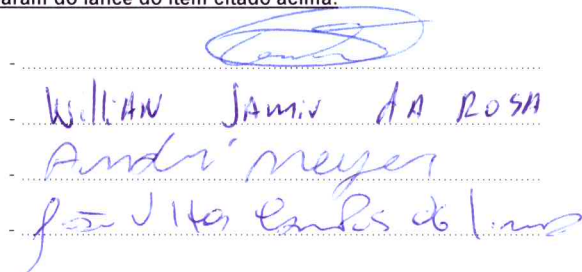 aram do lance do item citado acima:
-
- Willian Jamir da Rosa
- André Meyer
- João Vitor de Lima